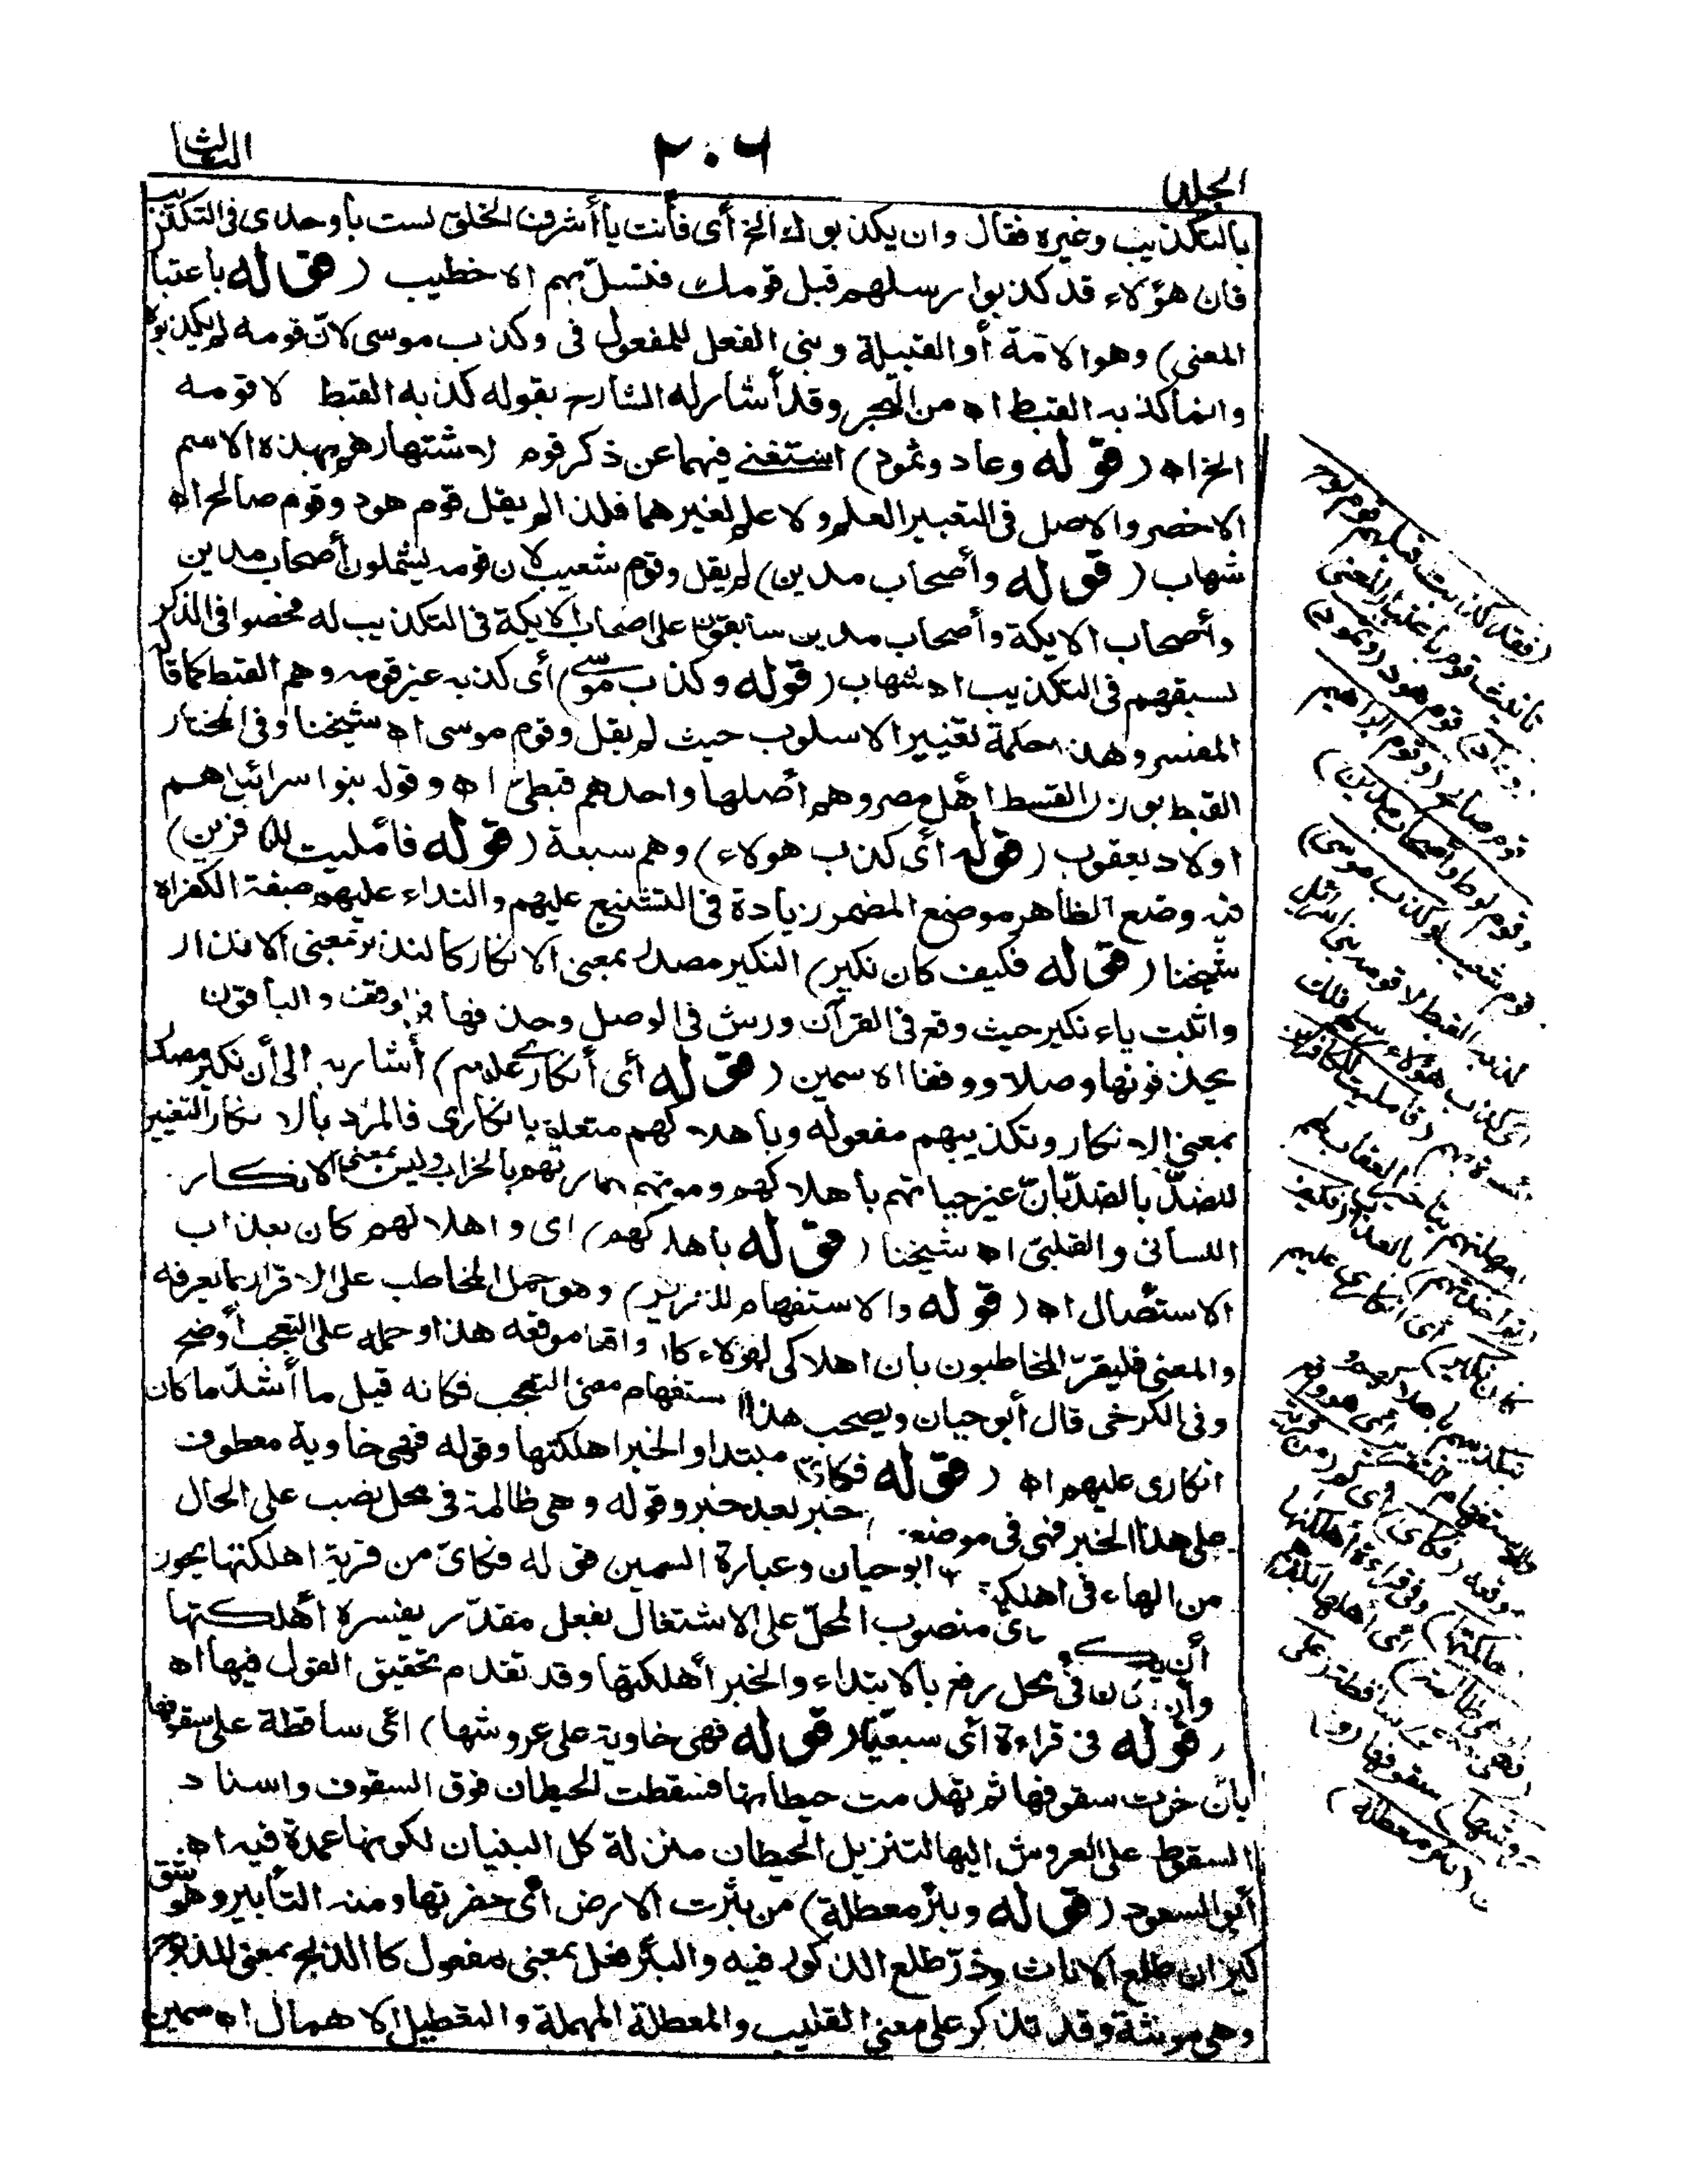 الجلد
٢٠٦
الثالث
بالتكذيب وغيره فقال وان يكذبوك الخ أى فأنت يا أشرف الخلق لست بأوحدى فى التكذيب
فان هؤلاء قد كذبوا رسلهم قبل قومك فتسلّ بهم اه خطيب (قوله باعتبار
المعنى) وهو الامّة أو القبيلة وبنى الفعل للمفعول فى وكذب موسى لانّ قومه لم يكذبوه
وانما كذبه القبط اه من البحر وقد أشار له الشارح بقوله كذبه القبط لا قومه
الخ اه (قوله وعاد وثمود) استغنى فيهما عن ذكر قوم لاشتهارهم بهذه الاسم
الاخصر والاصل فى التعبير العلم ولا علم لغيرهما فلذا لم يقل قوم هود وقوم صالح اه
شهاب (قوله وأصحاب مدين) لم يقل وقوم شعيب لان قومه يشملون أصحاب مدين
وأصحاب الايكة وأصحاب مدين سابقون على اصحاب الايكة فى التكذيب له فخصوا فى الذكر
لسبقهم فى التكذيب اه شهاب (قوله وكذب موسى) أى كذبه غير قومه وهم القبط كما قال
المفسر وهذا حكمة تغيير الاسلوب حيث لم يقل وقوم موسى اه شيخنا وفى المختار
القبط بوزن القسط اهل مصر وهم أصلها واحدهم قبطىّ اه وقوله بنوا سرائيل هم
اولاد يعقوب (قوله أى كذب هولاء) وهم سبعة (قوله فأمليت للكافرين)
فيه وضع الظاهر موضع المضمر زيادة فى التشنيع عليهم والنداء عليهم صيغة الكفر اه
شيخنا (قوله فكيف كان نكير) النكير مصدر بمعنى الانكار كالنذير بمعنى الانذار
واثبت ياء نكير حيث وقع فى القرآن ورش فى الوصل وحذفها فى الوقف والباقون
يحذفونها وصلا ووقفا اه سمين (قوله أى أنكارى عليهم) أشار به الى أن نكير مصدر
بمعنى الانكار وتكذيبهم مفعوله وبأهلاكهم متعلق بانكارى فالمرد بالانكار التغيير
للضدّ بالضدّ بأن غير حياتهم بأهلاكهم وموتهم وعمارتهم بالخراب وليس بمعنى الانكار
اللسانى والقلبىّ اه شيخنا (قوله بأهلاكهم) اى واهلاكهم كان بعذاب
الاستئصال اه (قوله والاستفهام للتقرير) وهو حمل المخاطب على الاقرار بما يعرفه
والمعنى فليقرّ المخاطبون بأن اهلاكى لهؤلاء كان واقعا موقعه هذا وحمله على التعجب أوضح
وفى الكرخى قال أبو حيان ويصحب هذا الاستفهام معنى التعجب فكانه قيل ما أشدّ ما كان
انكارى عليهم اه (قوله فكأين) مبتدا والخبر اهلكتها وقوله فهى خاوية معطوف
على هذا الخبر فهى فى موضع خبر بعد خبر وقوله وهى ظالمة فى محل نصب على الحال
من الهاء فى اهلكتها ابو حيان وعبارة السمين قوله فكاىّ من قرية اهلكتها يجوز
أن يكون كاى منصوب المحلّ على الاشتغال بفعل مقدّر يفسره أهلكتها
وأن يكون فى محل رفع بالابتداء والخبر أهلكتها وقد تقدم تحقيق القول فيها اه
(قوله فى قراءة أى سبعية (قوله فهى خاوية على عروشها) أى ساقطة على سقوفها
بأن خربت سقوفها ثم تهدمت حيطانها فسقطت الحيطان فوق السقوف واسناد
السقوط على العروش اليها لتنزيل الحيطان منزلة كل البنيان لكونها عمدة فيه اه
أبو السعود (قوله وبئر معطلة) من بئرت الارض أى حفرتها ومنه التأبير وهو شق
كيزان طلع الاناث وذرّ طلع الذكور فيه والبئر فعل بمعنى مفعول كا الذبح بمعنى المذبوح
وهى مونثة وقد تذكر على معنى القليب والمعطلة المهملة والتعطيل الاهمال اه سمين
(فقد كذبت قبلهم قوم نوح)
تأنيث قوم باعتبار المعنى
(وعاد) قوم هود (وثمود)
قوم صالح (وقوم ابراهيم
وقوم لوط وأصحاب مدين)
قوم شعيب (وكذب موسى)
كذبه القبط لا قومه بنى اسرائيل
أى كذب هؤلاء رسلهم فلك
أسوة بهم (فأمليت للكافرين)
أمهلتهم بتأخير العقاب لهم
(ثم أخذتهم) بالعذاب (فكيف
كان نكير) أى انكارى عليهم
بتكذيبهم باهلاكهم
والاستفهام للتقرير أى هو واقع
موقعه (فكأى) أى كم (من قرية
أهلكتها) وفى قراءة أهلكناها
(وهى ظالمة) أى أهلها بكفرهم
(فهى خاوية) ساقطة (على
عروشها) سقوفها (و)
(بئر معطلة)